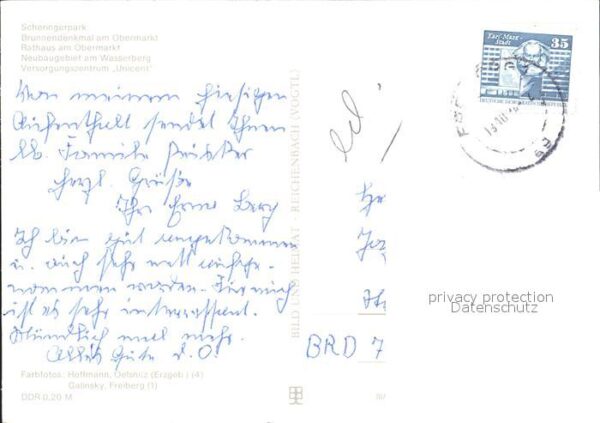 Scheringerpark
Brunnendenkmal am Obermarkt
Rathaus am Obermarkt
Neubaugebiet am Wasserberg
Versorgungszentrum „Unicent"
Von meinem hiesigen
Aufenthalt sendet Ihnen
lb. Familie
herzl. Grüße
Ihre Erna Berg
Ich bin gut angekommen
u. auch sehr nett aufge-
nommen worden. Für mich
ist es sehr interessant.
Mündlich mal mehr.
Alles Gute d. O.
Farbfotos: Hoffmann, Oelsnitz (Erzgeb.) (4)
Galinsky, Freiberg (1)
DDR 0,20 M
BILD UND HEIMAT · REICHENBACH (VOGTL)
Karl-Marx-
Stadt
35
BRD 7
privacy protection
Datenschutz